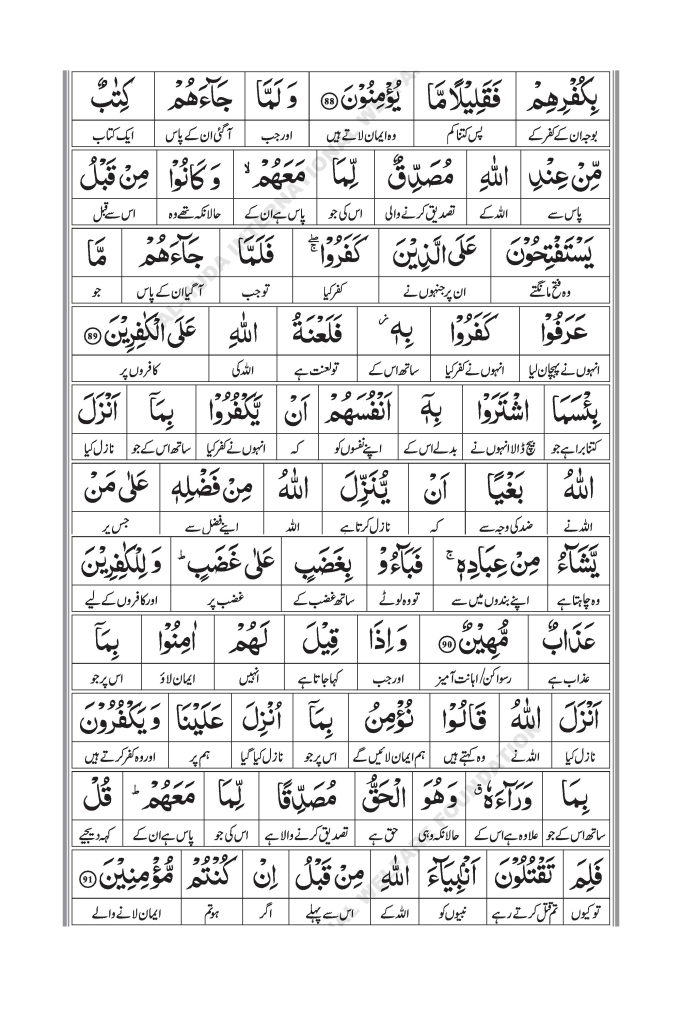 بِكُفْرِهِمْ فَقَلِيْلًا مَّا يُؤْمِنُوْنَ 88 وَ لَمَّا جَآءَهُمْ كِتٰبٌ
بوجہ ان کے کفر کے پس کتنا کم وہ ایمان لاتے ہیں اور جب آگئی ان کے پاس ایک کتاب
مِّنْ عِنْدِ اللهِ مُصَدِّقٌ لِّمَا مَعَهُمْ ۙ وَ كَانُوْا مِنْ قَبْلُ
پاس سے اللہ کے تصدیق کرنے والی اس کی جو پاس ہے ان کے حالانکہ تھے وہ اس سے قبل
يَسْتَفْتِحُوْنَ عَلَى الَّذِيْنَ كَفَرُوْا ۖۚ فَلَمَّا جَآءَهُمْ مَّا
وہ فتح مانگتے ان پر جنہوں نے کفر کیا تو جب آگیا ان کے پاس جو
عَرَفُوْا كَفَرُوْا بِهٖ ؗ فَلَعْنَةُ اللهِ عَلَى الْكٰفِرِيْنَ 89
انہوں نے پہچان لیا انہوں نے کفر کیا ساتھ اس کے تو لعنت ہے اللہ کی کافروں پر
بِئْسَمَا اشْتَرَوْا بِهٖٓ اَنْفُسَهُمْ اَنْ يَّكْفُرُوْا بِمَآ اَنْزَلَ
کتنا برا ہے جو بیچ ڈالا انہوں نے بدلے اس کے اپنے نفسوں کو کہ انہوں نے کفر کیا ساتھ اس کے جو نازل کیا
اللهُ بَغْيًا اَنْ يُّنَزِّلَ اللهُ مِنْ فَضْلِهٖ عَلٰى مَنْ
اللہ نے ضد کی وجہ سے کہ نازل کرتا ہے اللہ اپنے فضل سے جس پر
يَّشَآءُ مِنْ عِبَادِهٖ ۚ فَبَآءُوْ بِغَضَبٍ عَلٰى غَضَبٍ ؕ وَ لِلْكٰفِرِيْنَ
وہ چاہتا ہے اپنے بندوں میں سے تو وہ لوٹے ساتھ غضب کے غضب پر اور کافروں کے لیے
عَذَابٌ مُّهِيْنٌ 90 وَ اِذَا قِيْلَ لَهُمْ اٰمِنُوْا بِمَآ
عذاب ہے رسوا کن/اہانت آمیز اور جب کہا جاتا ہے انہیں ایمان لاؤ اس پر جو
اَنْزَلَ اللهُ قَالُوْا نُؤْمِنُ بِمَآ اُنْزِلَ عَلَيْنَا وَ يَكْفُرُوْنَ
نازل کیا اللہ نے وہ کہتے ہیں ہم ایمان لائیں گے اس پر جو نازل کیا گیا ہم پر اور وہ کفر کرتے ہیں
بِمَا وَرَآءَهٗ ۗ وَهُوَ الْحَقُّ مُصَدِّقًا لِّمَا مَعَهُمْ ؕ قُلْ
ساتھ اس کے جو علاوہ ہے اس کے حالانکہ وہی حق ہے تصدیق کرنے والا ہے اس کی جو پاس ہے ان کے کہہ دیجیے
فَلِمَ تَقْتُلُوْنَ اَنْۢبِيَآءَ اللهِ مِنْ قَبْلُ اِنْ كُنْتُمْ مُّؤْمِنِيْنَ 91
تو کیوں تم قتل کرتے رہے نبیوں کو اللہ کے اس سے پہلے اگر ہو تم ایمان لانے والے